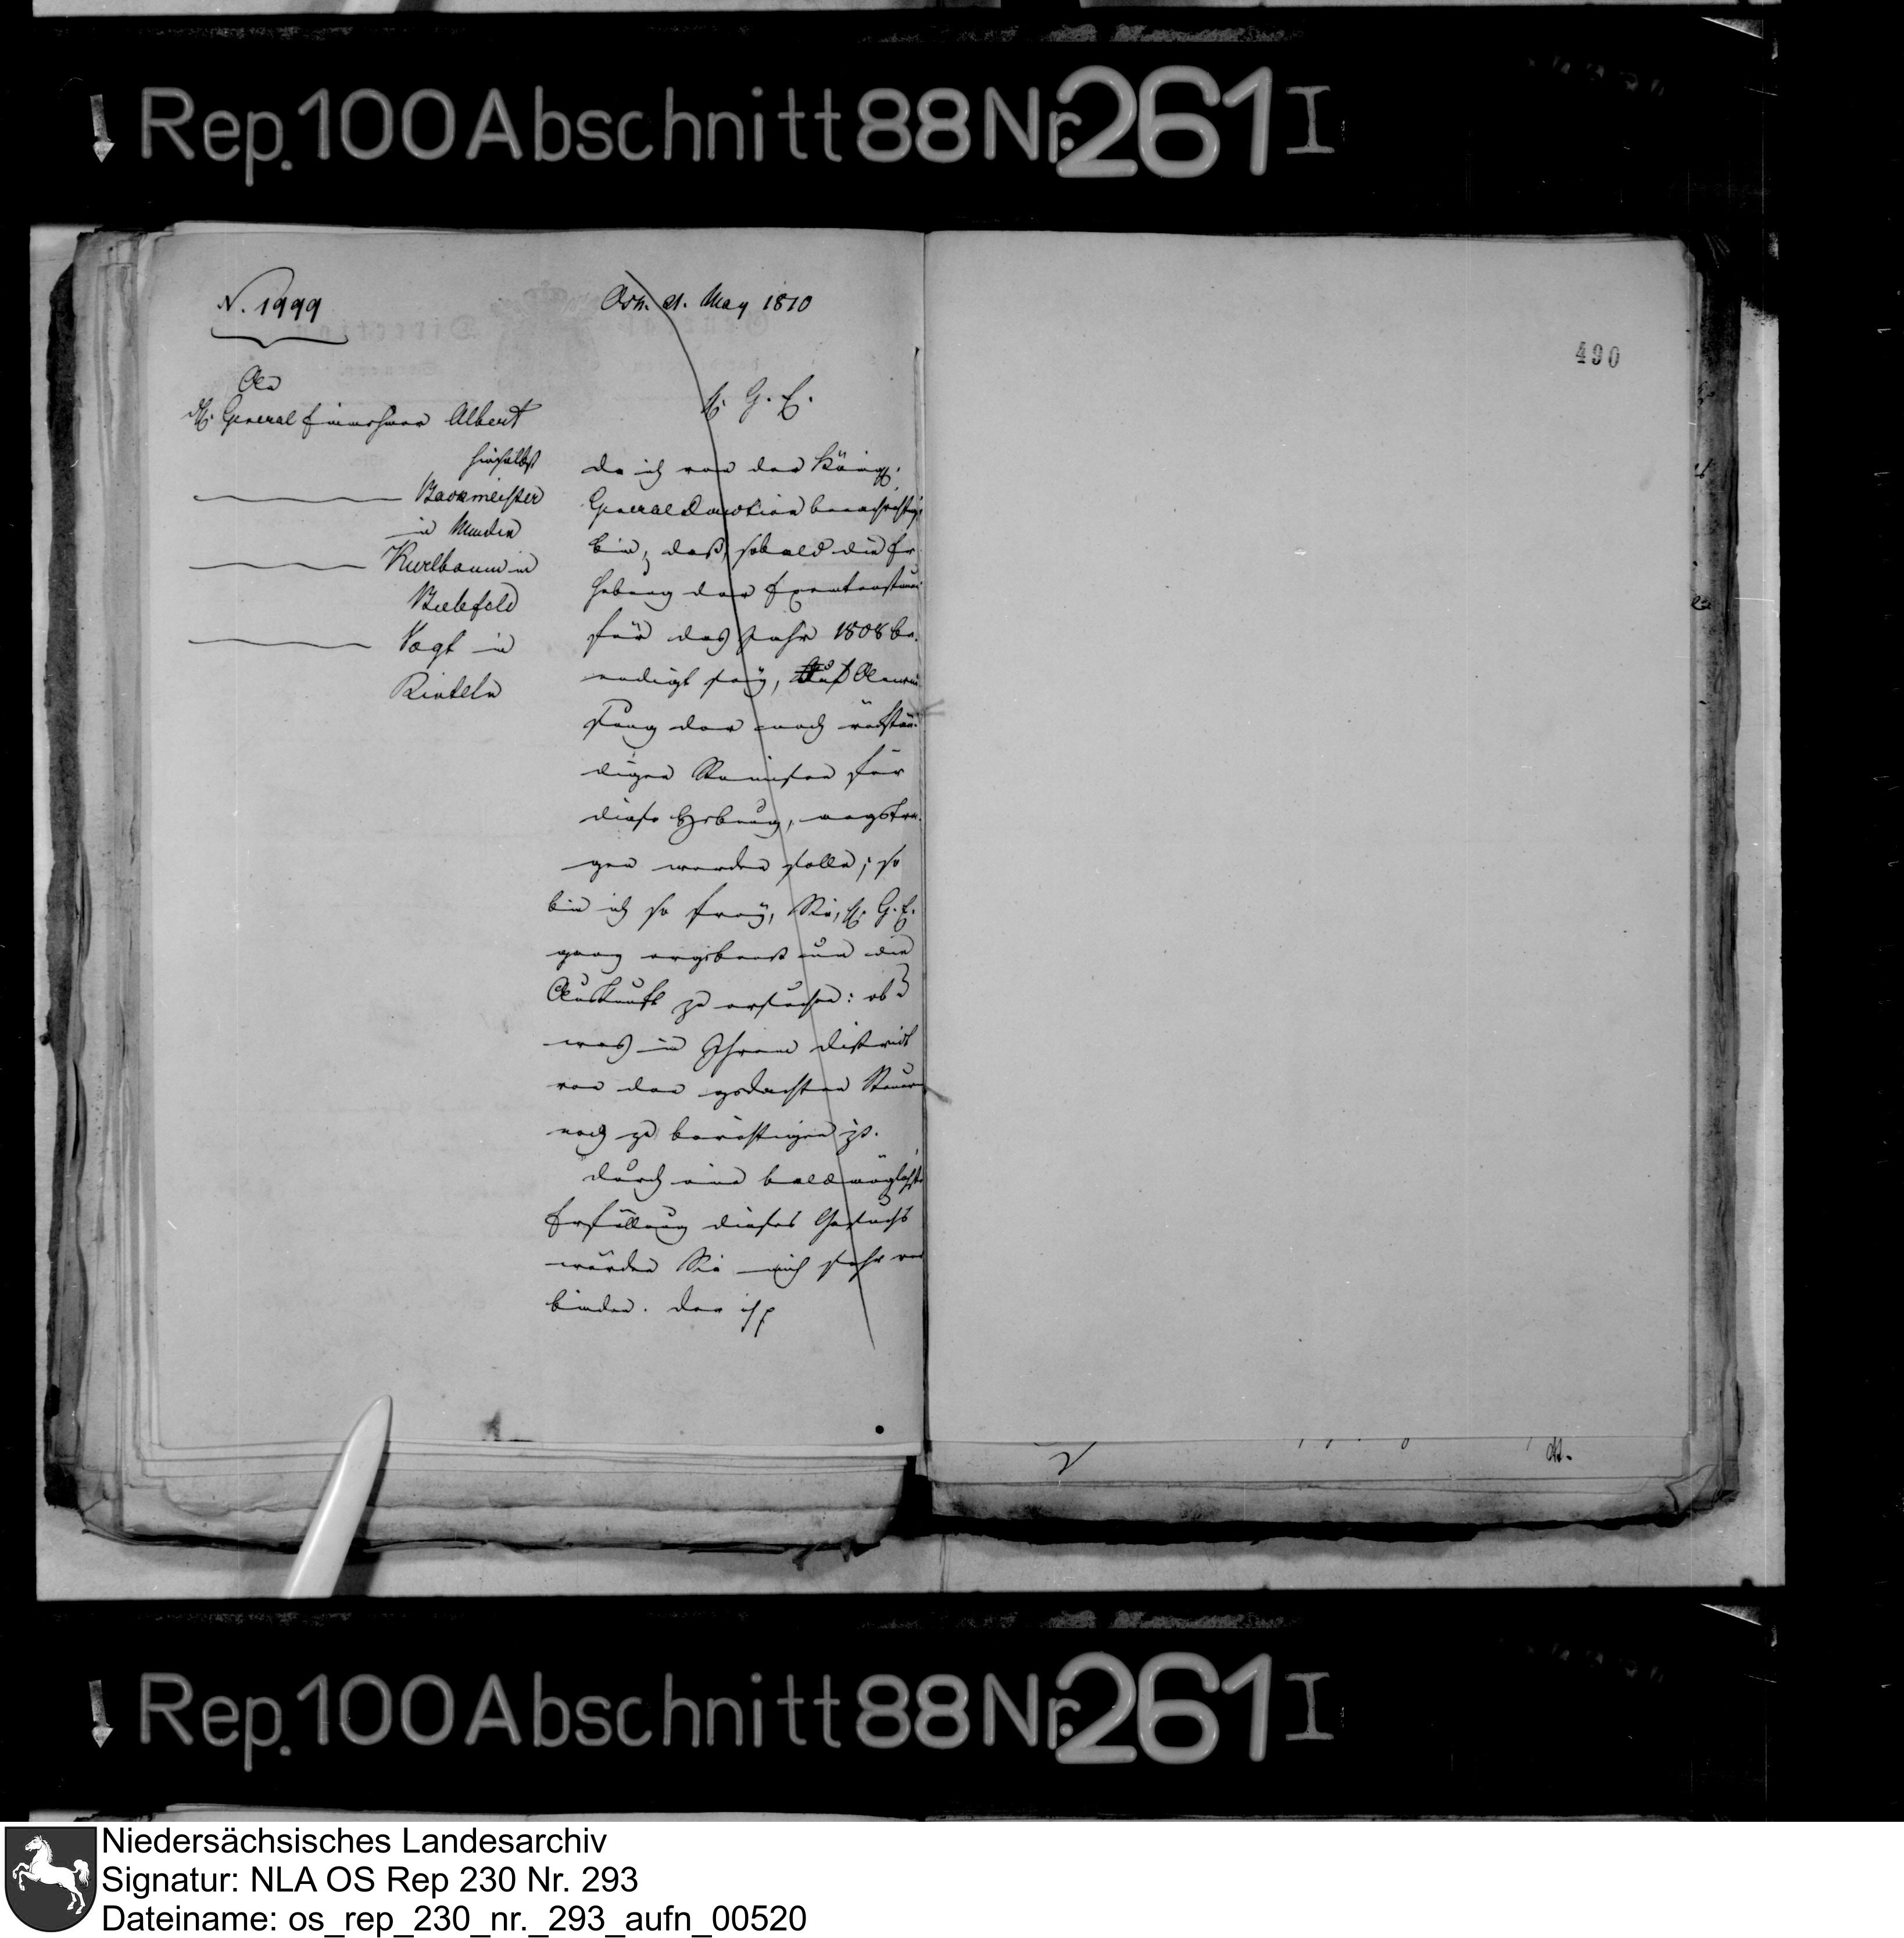 Rep. 100 Abschnitt 88 Nr. 261 I
N. 1999
Osn. 21. May 1810
An
H. General Einnehmer Albert
hieselbst
Backmeister
in Minden
Kurlbaum in
Bielefeld
Vogt in
Rinteln
H. G. E.
da ich von der Königl.
General Direction benachrichtigt
bin, daß, sobald die Er
hebung der Exemtensteuer
für das Jahr 1808 be-
endigt sey, auf Anwei
sung der noch rückstän-
digen Remisen für
diese Hebung, angetra-
gen werden solle; so
bin ich so frey, Sie, H. G. E.
ganz ergebenst um die
Auskunft zu ersuchen: ob u
was in Ihrem District
von der gedachten Steuer
noch zu berichtigen ist.
Durch eine baldmöglichste
Erfüllung dieses Gesuchs
würden Sie mich sehr ver
binden. Der
490
Rep. 100 Abschnitt 88 Nr. 261 I
Niedersächsisches Landesarchiv
Signatur: NLA OS Rep 230 Nr. 293
Dateiname: os_rep_230_nr._293_aufn_00520